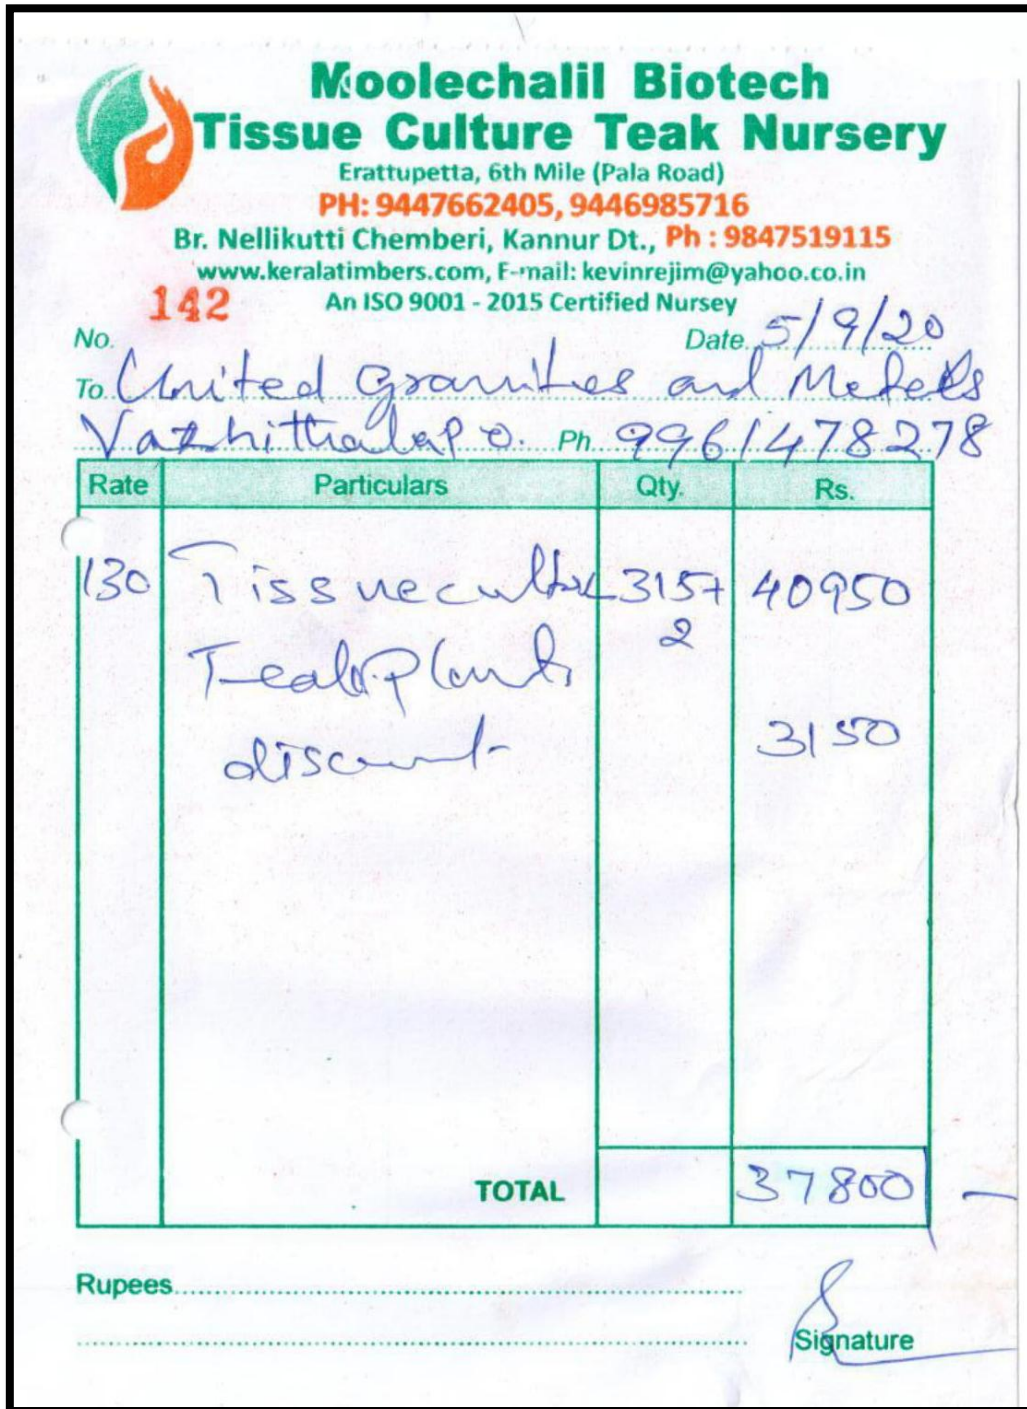 Moolechalil Biotech
Tissue Culture Teak Nursery
Erattupetta, 6th Mile (Pala Road)
PH: 9447662405, 9446985716
Br. Nellikutti Chemberi, Kannur Dt., Ph : 9847519115
www.keralatimbers.com, E-mail: kevinrejim@yahoo.co.in
An ISO 9001 - 2015 Certified Nursey
No. 142 Date 5/9/20
To United Granites and Metals
Vazhithala P.O. Ph 9961478278
Rate Particulars Qty. Rs.
130 Tissueculture 315+ 40950
Teak Plants 2
discount 3150
TOTAL 37800
Rupees
Signature